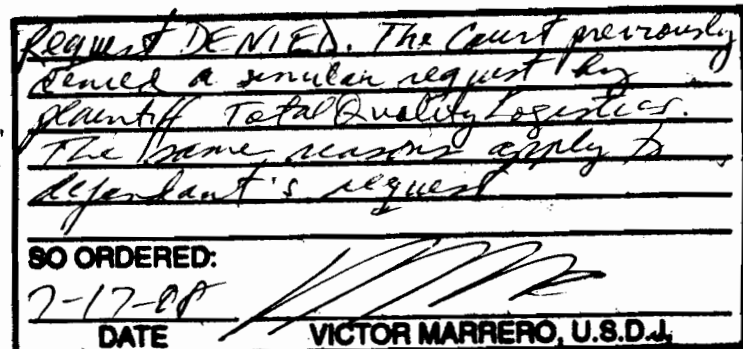 Request DENIED. The Court previously
denied a similar request by
plaintiff Total Quality Logistics.
The same reasons apply to
defendant's request
SO ORDERED:
7-17-08
DATE VICTOR MARRERO, U.S.D.J.